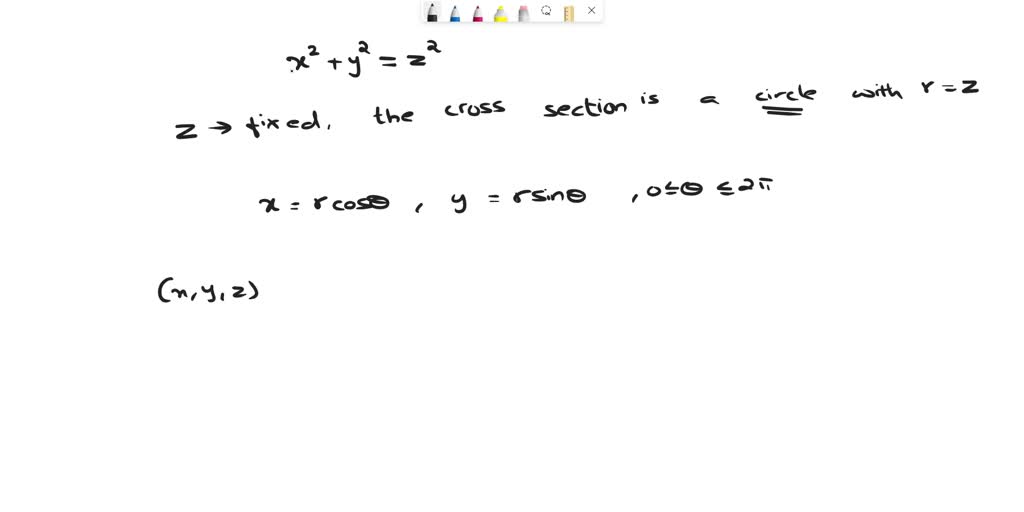 x² + y² = z²
z → fixed, the cross section is a circle with r = z
x = rcosθ , y = rsinθ , 0 ≤ θ ≤ 2π
(x, y, z)